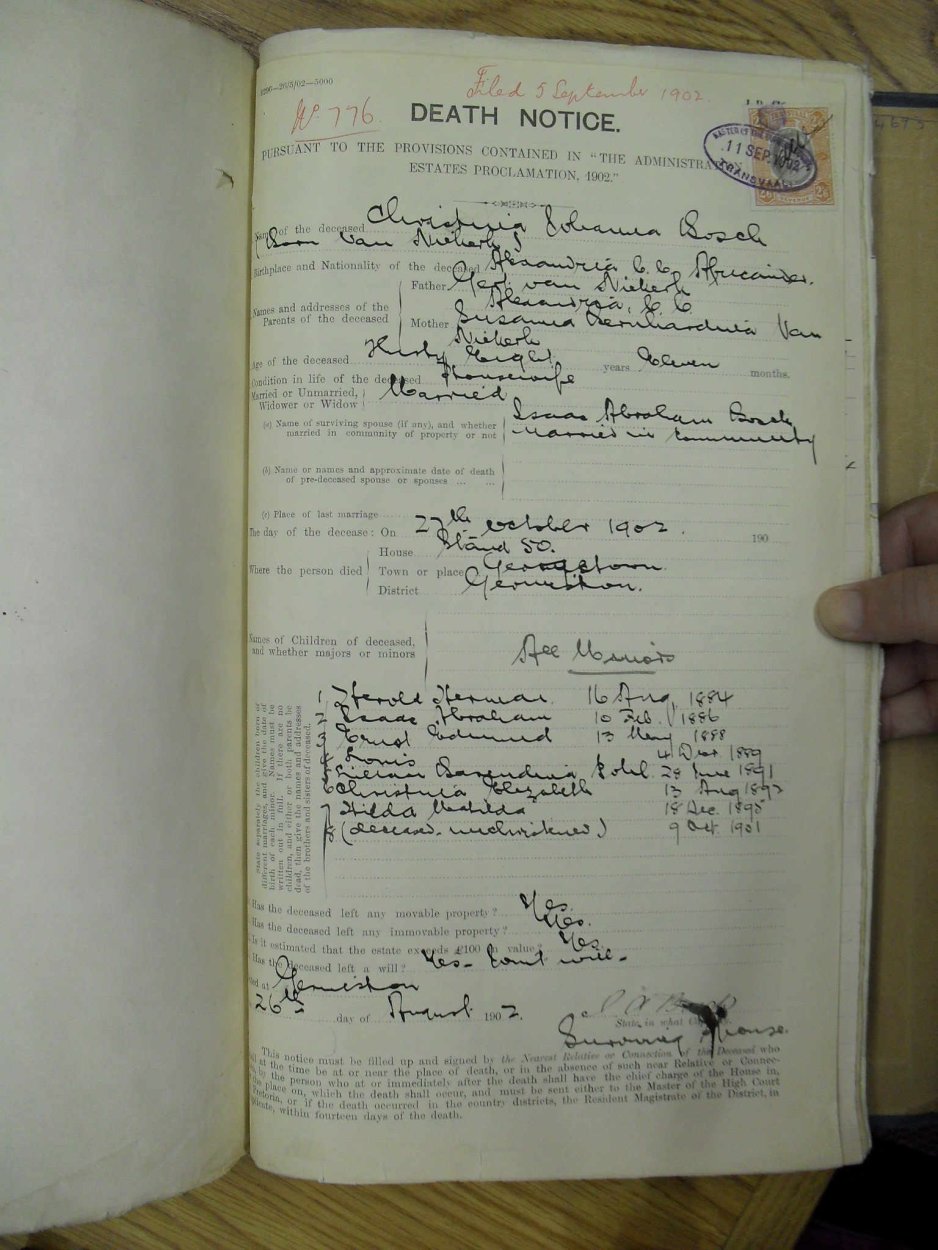 1296—26/5/02—5000
Filed 5 September 1902.
No 776.
DEATH NOTICE.
MASTER OF THE
11 SEP. 1902
TRANSVAAL
PURSUANT TO THE PROVISIONS CONTAINED IN "THE ADMINISTRATION
ESTATES PROCLAMATION, 1902."
Name of the deceased Christina Johanna Bosch
(Born Van Niekerk)
Birthplace and Nationality of the deceased Alexandria C.C. Africander.
Names and addresses of the Parents of the deceased
Father Gert van Niekerk
Alexandria, C. C
Mother Susanna Bernhardina Van
Niekerk
Age of the deceased Thirty Eight years Eleven months.
Condition in life of the deceased Housewife
Married or Unmarried, Widower or Widow Married
(a) Name of surviving spouse (if any), and whether married in community of property or not
Isaac Abraham Bosch
married in Community
(b) Name or names and approximate date of death
of pre-deceased spouse or spouses ... ...
(c) Place of last marriage
The day of the decease: On 27th October 1902. 190
Where the person died
House Stand 50.
Town or place Georgetown.
District Germiston.
Names of Children of deceased,
and whether majors or minors
All Minors
State separately the children born of
different marriages, and give the date of
birth of each minor. Names must be
written out in full. If there are no
children, and either or both parents be
dead, then give the names and addresses
of the brothers and sisters of deceased.
1 Herold Herman 16 Aug. 1884
2 Isaac Abraham 10 Feb. 1886
3 Ernst Edmund 13 May 1888
4 Louis 4 Dec 1889
5 Lilian 28 June 1891
6 Christina Elizabeth 13 Aug 1892
7 Hilda Mathilda 18 Dec. 1895
8 (deceased. unchristened) 9 Oct 1901
Has the deceased left any movable property? Yes.
Has the deceased left any immovable property? Yes.
Is it estimated that the estate exceeds £100 in value? Yes.
Has the deceased left a will? Yes - Joint will.
Dated at Germiston
26th day of August 1902.
State in what
Surviving Spouse.
This notice must be filled up and signed by the Nearest Relative or Connection of the Deceased who
at the time be at or near the place of death, or in the absence of such near Relative or Connec-
by the person who at or immediately after the death shall have the chief charge of the House in,
place on, which the death shall occur, and must be sent either to the Master of the High Court
Pretoria, or if the death occurred in the country districts, the Resident Magistrate of the District, in
within fourteen days of the death.